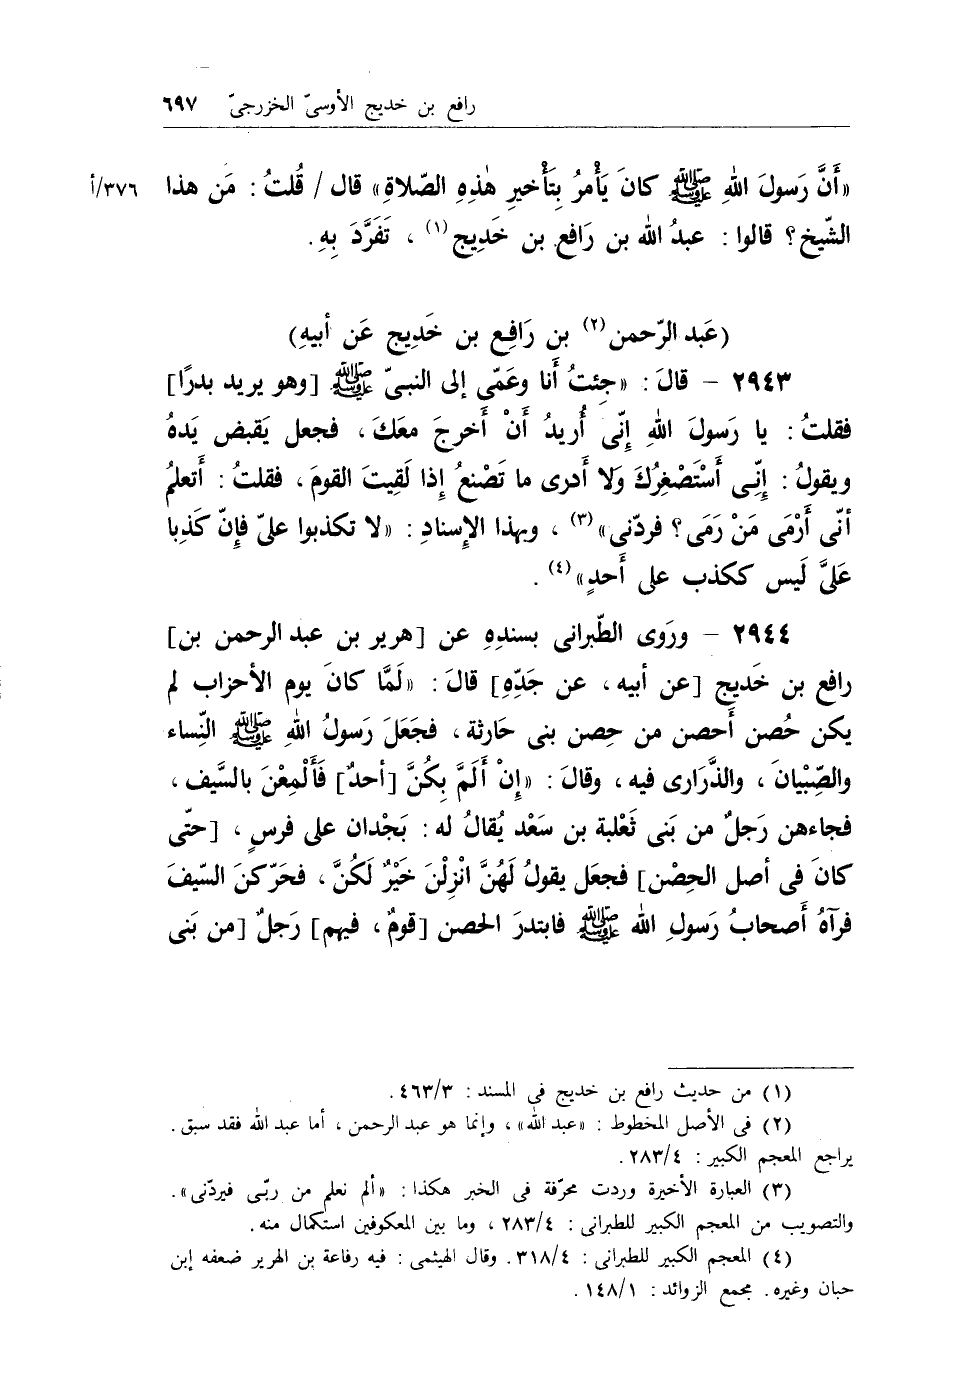 رافع بن خديج الأوسىّ الخزرجىّ ٦٩٧
«أَنَّ رَسولَ اللهِ ﷺ كانَ يَأْمرُ بِتَأْخيرِ هٰذِهِ الصّلاةِ» قال / قُلتُ : مَن هذا ٣٧٦/أ
الشّيخ؟ قالوا : عبدُ الله بن رَافعِ بن خَديج(١) ، تَفَرَّدَ بِهِ.
(عَبد الرّحمن(٢) بن رَافِع بن خَدِيج عَن أبيهِ)
٢٩٤٣ – قالَ : «جِئتُ أَنا وعَمّى إلى النبىّ ﷺ [وهو يريد بدرًا]
فقلتُ : يا رَسولَ اللهِ إنّى أُريدُ أَنْ أَخرجَ معَكَ ، فجعل يَقبض يَدهُ
ويقولُ : إِنّى أَسْتَصْغِرُكَ وَلا أدرى ما تَصْنعُ إِذا لَقِيتَ القومَ ، فقلتُ : أَتعلمُ
أنّى أَرْمَى مَنْ رَمَى؟ فردّنى»(٣) ، وبهذا الإِسنادِ : «لا تكذبوا علىّ فإِنّ كَذِبا
عَلىَّ لَيس ككذب على أَحدٍ»(٤) .
٢٩٤٤ – وروَى الطّبرانى بسندِهِ عن [هرير بن عبد الرحمن بن]
رافع بن خَديج [عن أبيه ، عن جَدّهِ] قالَ : «لَمَّا كانَ يوم الأحزاب لم
يكن حُصن أَحصن من حِصن بنى حَارثة ، فجَعَلَ رَسولُ اللهِ ﷺ النِّساء
والصِّبْيانَ ، والذَّرَارى فيه ، وقالَ : «إِنْ أَلَمَّ بِكُنَّ [أحدٌ] فَأَلْمِعْنَ بالسَّيف ،
فجاءهن رَجلٌ من بَنى ثَعْلبة بن سَعْد يُقالُ له : بَجْدان على فرسٍ ، [حتّى
كانَ فى أصل الحِصْن] فجعَل يقولُ لَهُنَّ انْزِلْنَ خَيْرٌ لَكُنَّ ، فحَرّكنَ السّيفَ
فرآهُ أَصحابُ رَسولِ الله ﷺ فابتدرَ الحصن [قومٌ ، فيهم] رَجلٌ [من بَنى
(١) من حديث رافع بن خديج فى المسند : ٤٦٣/٣ .
(٢) فى الأصل المخطوط : «عبد الله» ، وإنما هو عبد الرحمن ، أما عبد الله فقد سبق .
يراجع المعجم الكبير : ٢٨٣/٤ .
(٣) العبارة الأخيرة وردت محرّفة فى الخبر هكذا : «ألم نعلم من ربّى فيردّنى» .
والتصويب من المعجم الكبير للطبرانى : ٢٨٣/٤ ، وما بين المعكوفين استكمال منه .
(٤) المعجم الكبير للطبرانى : ٣١٨/٤ . وقال الهيثمى : فيه رفاعة بن الهرير ضعفه إبن
حبان وغيره . مجمع الزوائد : ١٤٨/١ .